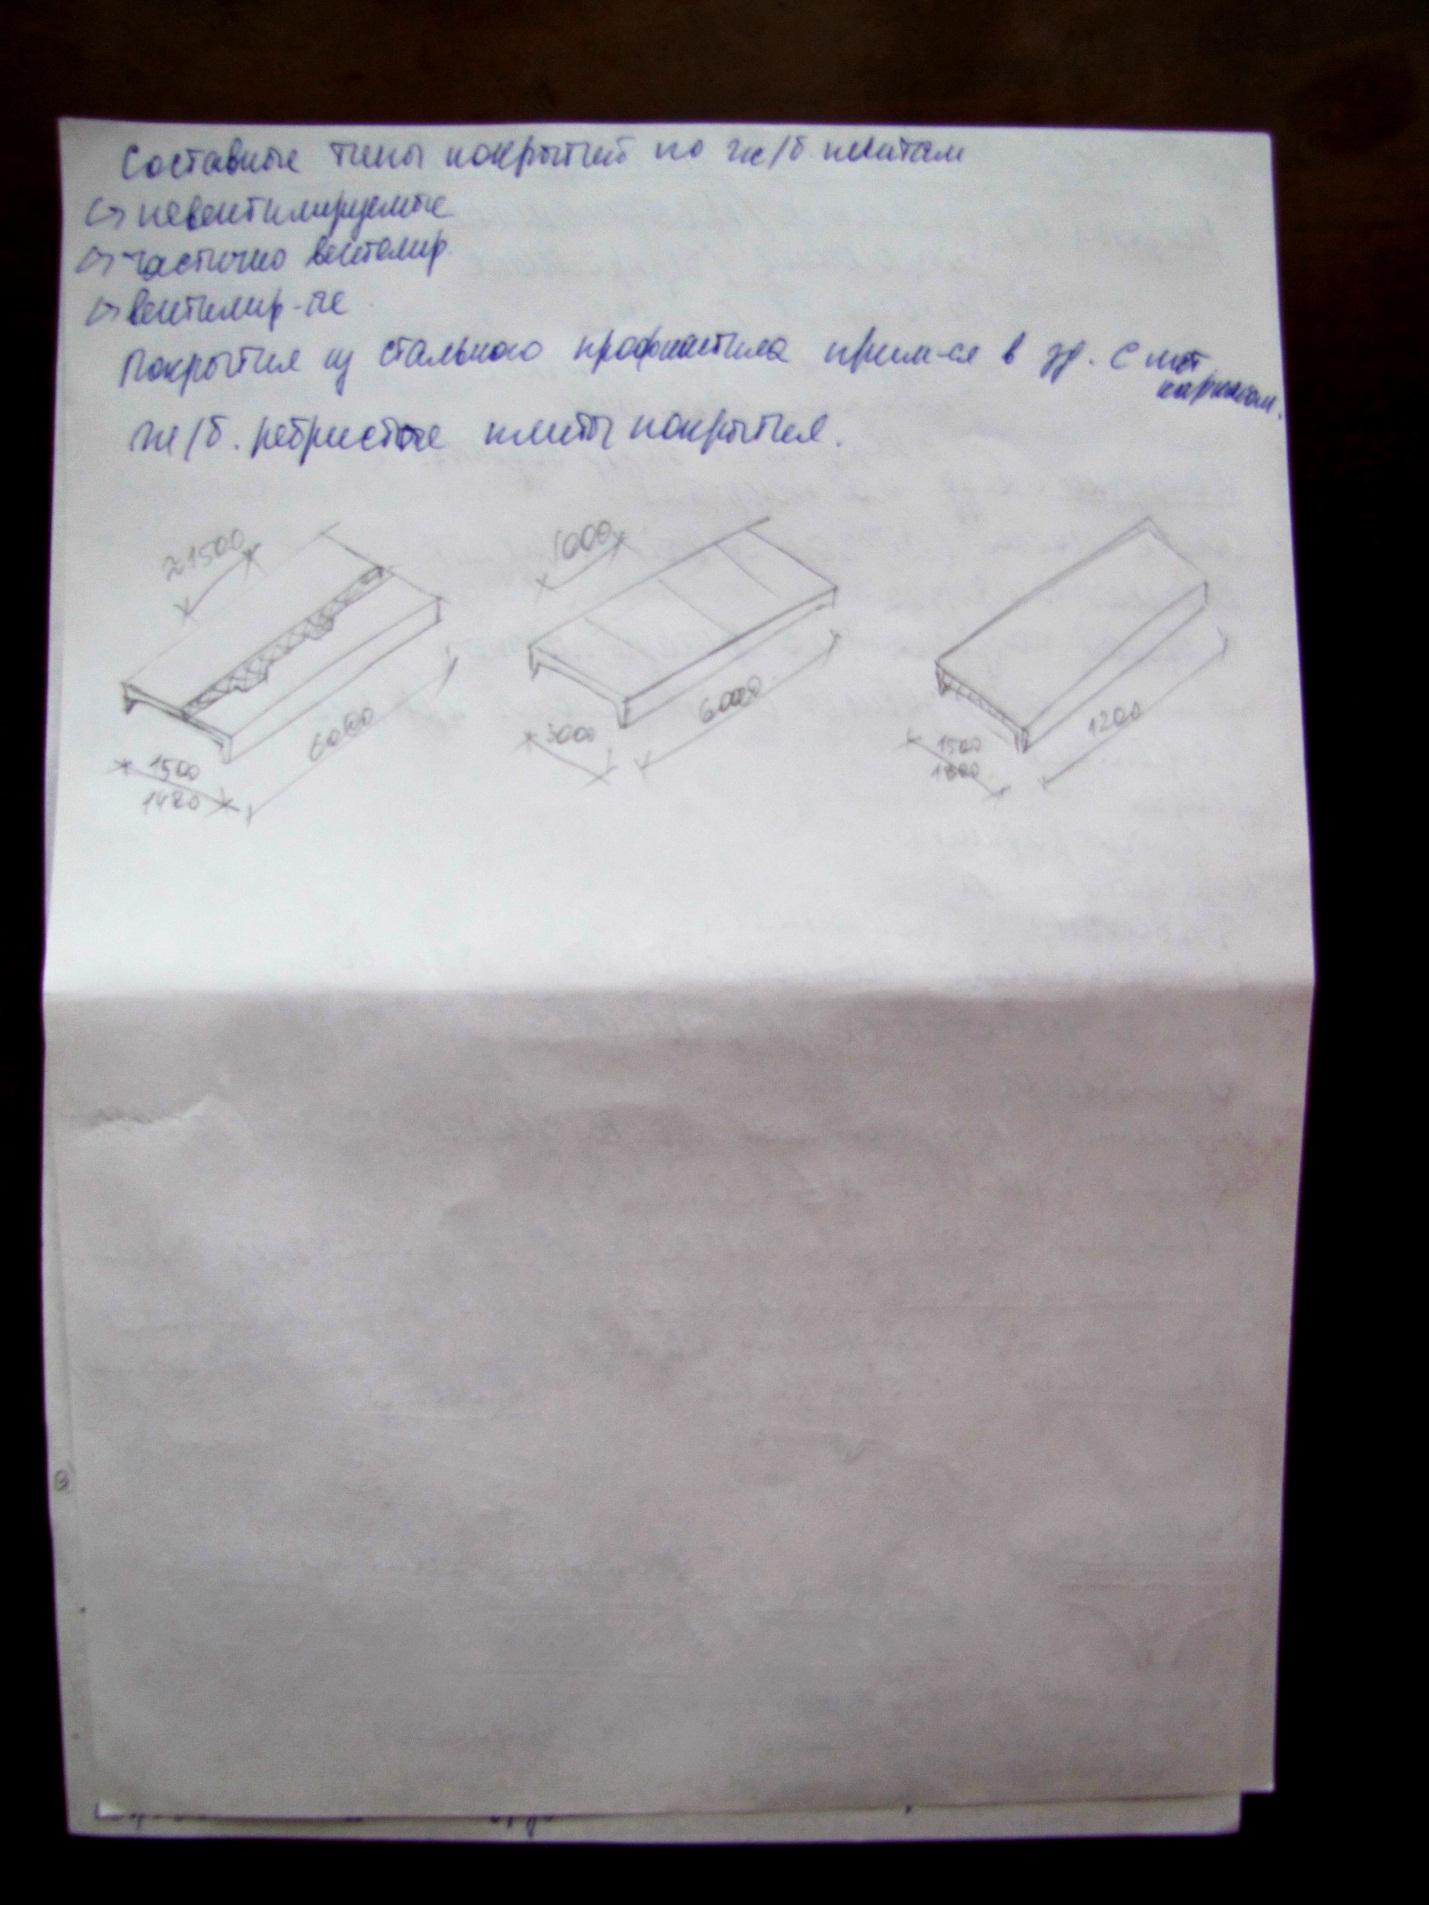 Составные типы покрытий по ж/б. плитам
↳ невентилируемые
↳ частично вентилир.
↳ вентилир-ые
Покрытия из стального профнастила прим-ся в зд. с мет
каркасом.
ж/б. ребристые плиты покрытия.
≥1500 1000
1500 6000 3000 6000 1500 1200